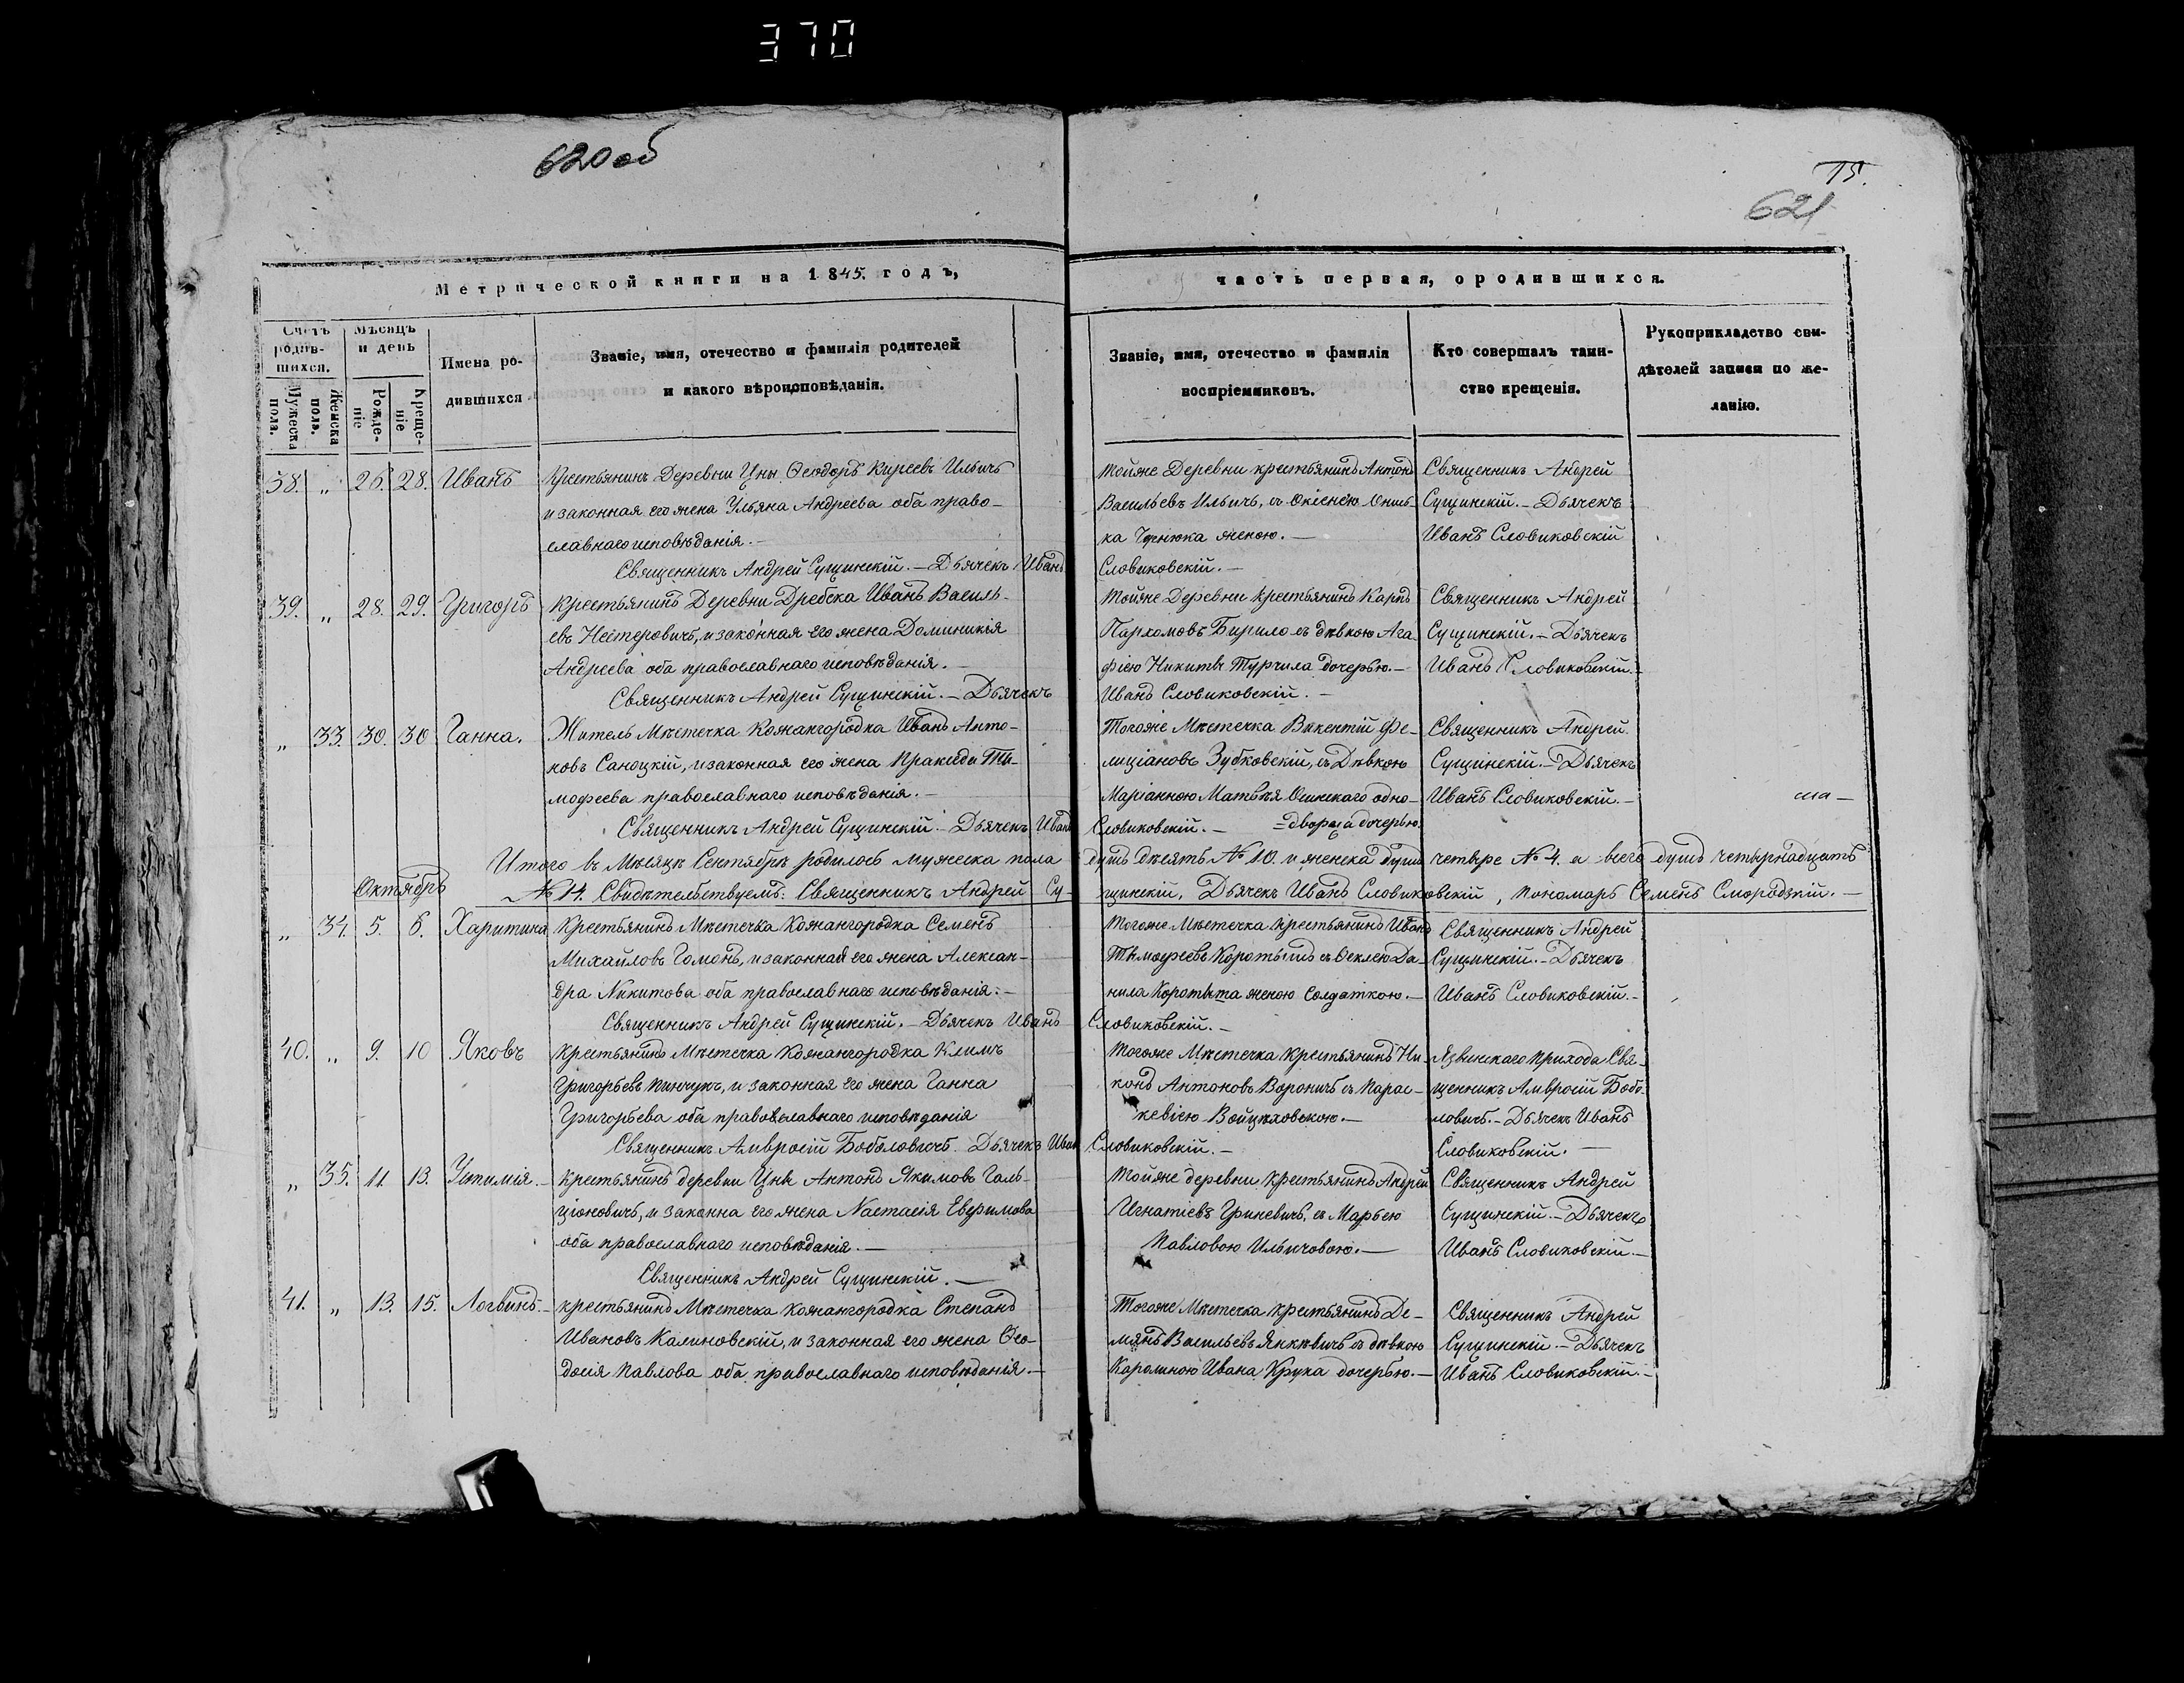 370
620об
15.
621
Метрической книги на 1845. годъ,
часть первая, о родившихся.
Счетъ родив-
шихся.
Мужеска пола.
Женска пола.
Мѣсяцъ и день
Рожде-
ніе
Креще-
ніе
Имена ро-
дившихся
Званіе, имя, отечество и фамилія родителей
и какого вѣроисповѣданія.
Званіе, имя, отечество и фамилія
воспріемниковъ.
Кто совершалъ таин-
ство крещенія.
Рукоприкладство сви-
дѣтелей записи по же-
ланію.
38. „ 26. 28. Иванъ
Крестьянинъ Деревни Цны Ѳеодоръ Киреевъ Ильичъ
и законная его жена Ульяна Андреева оба право-
славнаго исповѣданія.-
Священникъ Андрей Сущинскій.- Дьячекъ Иванъ
Тойже Деревни крестьянинъ Антонъ
Васильевъ Ильичъ, съ Окіснею
ка жена.-
Словиковскій.-
Священникъ Андрей
Сущинскій.- Дьячекъ
Иванъ Словиковскій
39. „ 28. 29. Григоръ
Крестьянинъ Деревни Дребска Иванъ Василь-
евъ Нестеровичъ, и законная его жена Доминикія
Андреева оба православнаго исповѣданія.-
Священникъ Андрей Сущинскій.- Дьячекъ
Тойже Деревни Крестьянинъ Карпъ
Пархомовъ Бирило съ дѣвкою Ага-
фіею Никиты Турчила дочерью.-
Иванъ Словиковскій.-
Священникъ Андрей
Сущинскій.- Дьячекъ
Иванъ Словиковскій.-
„ 33. 30. 30 Ганна.
Житель Мѣстечка Кожангородка Иванъ Анто-
новъ Саноцкій, и законная его жена Пракседа Ти-
мофеева православнаго исповѣданія.-
Священникъ Андрей Сущинскій.- Дьячекъ Иванъ
Тогоже Мѣстечка Викентій Фе-
лиціановъ Зубковскій, съ Дѣвкою
Маріанною Матвѣя Осинскаго одно-
Словиковскій.- =дворца дочерью.
Священникъ Андрей
Сущинскій.- Дьячекъ
Иванъ Словиковскій.-
Итого въ Мѣсяцѣ Сентябрѣ родилось мужеска пола душъ десять № 10. и женска душъ четыре № 4. а всего душъ четырнадцать
№ 14. Свидѣтельствуемъ: Священникъ Андрей Су-щинскій, Дьячекъ Иванъ Словиковскій, Пономарь Семенъ Смородзкій.-
Октябрь
„ 34. 5. 6. Харитина
Крестьянинъ Мѣстечка Кожангородка Семенъ
Михайловъ Гомонъ, и законная его жена Алексан-
дра Никитова оба православнаго исповѣданія.-
Священникъ Андрей Сущинскій.- Дьячекъ Иванъ
Тогоже Мѣстечка Крестьянинъ Иванъ
Тимофеевъ Коротышъ съ Ѳеклею Да-
нила Коротыша женою Солдаткою.-
Словиковскій.-
Священникъ Андрей
Сущинскій.- Дьячекъ
Иванъ Словиковскій.-
40. „ 9. 10 Яковъ
Крестьянинъ Мѣстечка Кожангородка Климъ
Григорьевъ Пинчукъ, и законная его жена Ганна
Григорьева оба православнаго исповѣданія
Священникъ Амвросій Боболовичъ. Дьячекъ Иванъ
Тогоже Мѣстечка Крестьянинъ Ни-
конъ Антоновъ Вороничъ съ Парас-
кевіею Войцѣховскою.-
Словиковскій.-
Язвинскаго Прихода Свя-
щенникъ Амвросій Бобо-
ловичъ.- Дьячекъ Иванъ
Словиковскій.-
„ 35. 11. 13. Устимія.-
Крестьянинъ деревни Цны Антонъ Якимовъ Галь-
ціоновичъ, и законна его жена Настасія Евфимова
оба православнаго исповѣданія.-
Священникъ Андрей Сущинскій.-
Тойже деревни крестьянинъ Андрей
Игнатіевъ Гриневичъ, съ Марьею
Павловою Ильичовою.-
Священникъ Андрей
Сущинскій.- Дьячекъ
Иванъ Словиковскій.-
41. „ 13. 15. Логвинъ.-
Крестьянинъ Мѣстечка Кожангородка Степанъ
Ивановъ Калиновскій, и законная его жена Ѳео-
досія Павлова оба православнаго исповѣданія.-
Тогоже Мѣстечка крестьянинъ Де-
мянъ Васильевъ Янкѣвичъ съ дѣвкою
Каролиною Ивана Крука дочерью.-
Священникъ Андрей
Сущинскій.- Дьячекъ
Иванъ Словиковскій.-